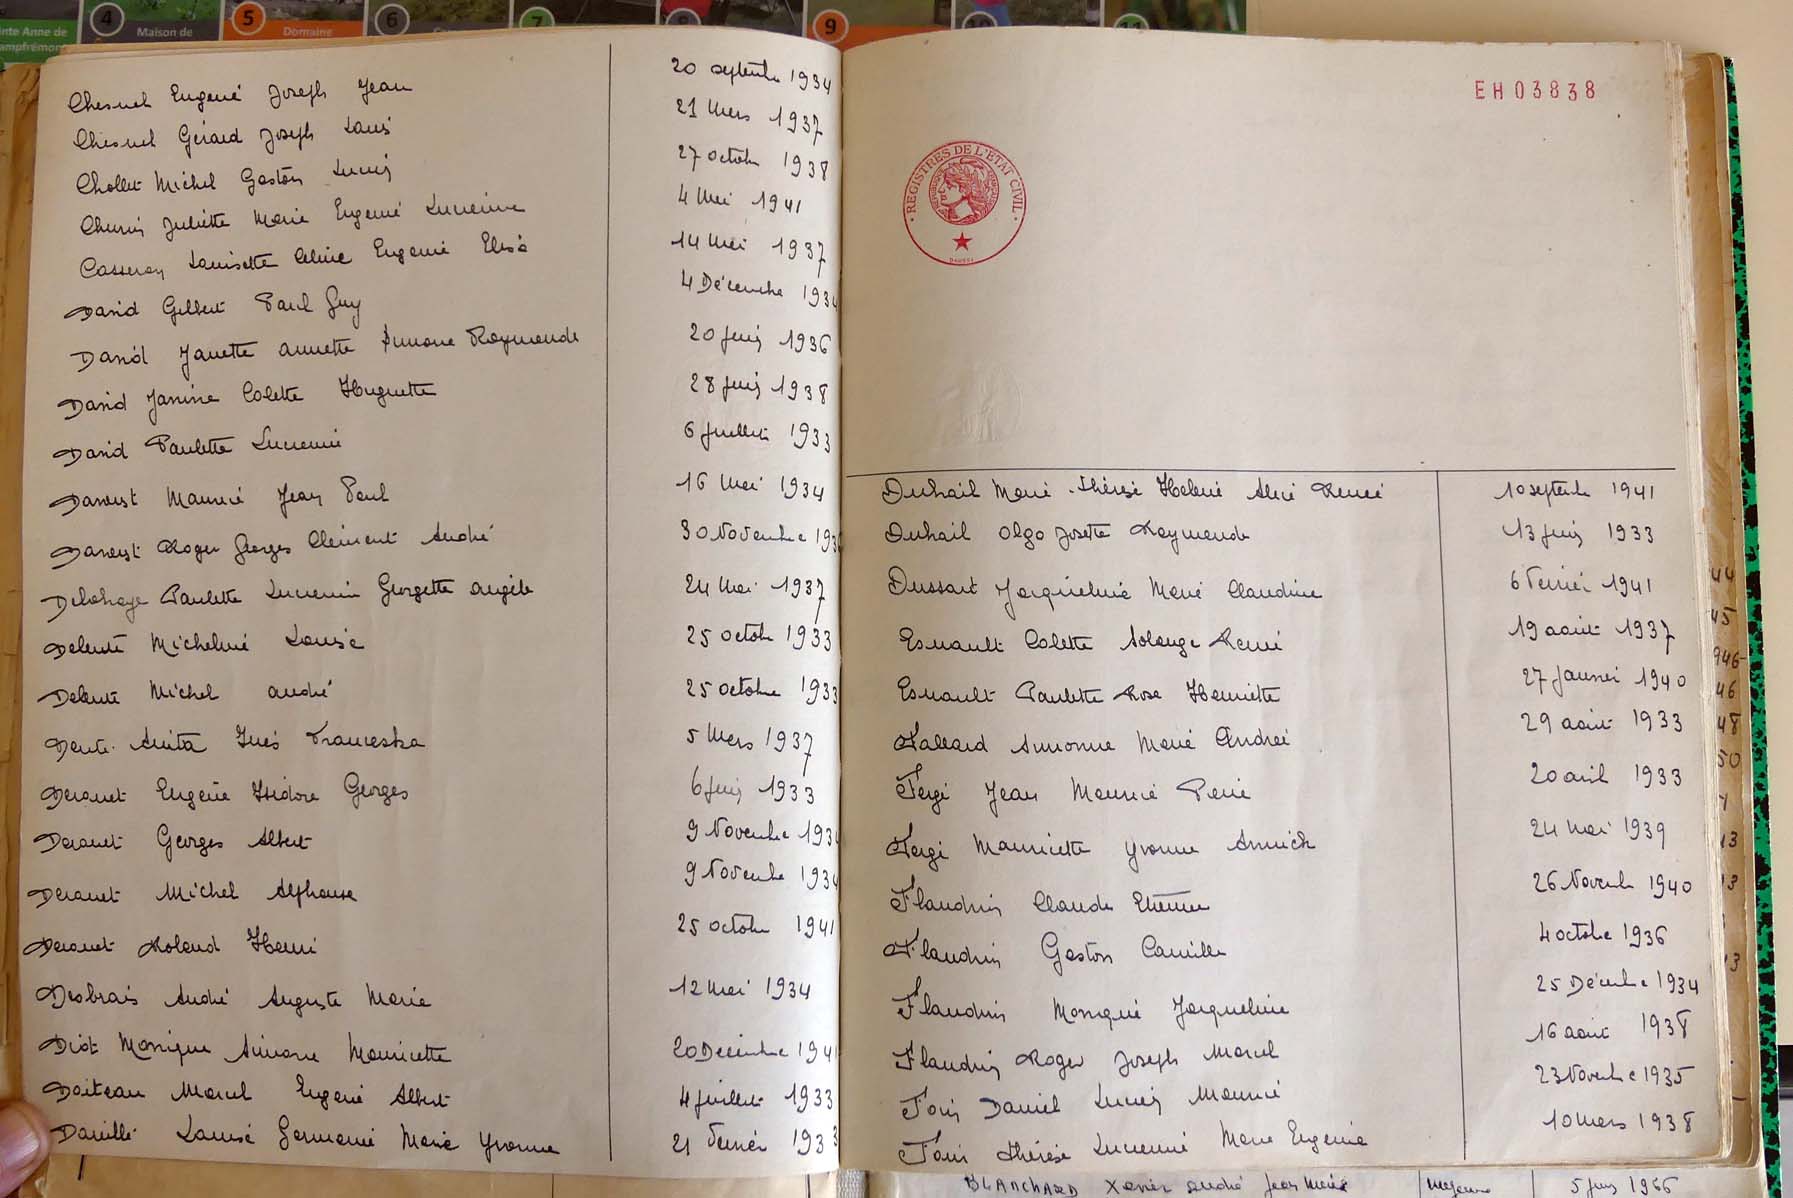 4 Maison de
5 Domaine
6
7
8
9
10
11
Chesnel Eugené Joseph Jean 20 septembre 1934
Chesnel Gérard Joseph Louis 21 Mars 1937
Chollet Michel Gaston Lucien 27 octobre 1938
Juliette Marie Eugenié Lucienne 4 Mai 1941
Casseron Louisette Celine Eugenie Elisa 14 Mai 1937
David Gilbert Paul Guy 4 Décembre 1934
David Janette Annette Simone Raymonde 20 juin 1936
David Janine Colette Huguette 28 juin 1938
David Paulette Lucienne 6 juillet 1933
Maurice Jean Paul 16 Mai 1934
Roger Georges Clément André 30 Novembre
Delahaye Paulette Lucienne Georgette Angèle 24 Mai 1937
Delente Micheline Louise 25 octobre 1933
Delente Michel André 25 octobre 1933
Anita Inès Franceska 5 Mars 1937
Derouet Eugène Isidore Georges 6 juin 1933
Derouet Georges Albert 9 Novembre 1934
Derouet Michel Alphonse 9 Novembre 1934
Derouet Roland Henri 25 octobre 1941
Desbrais André Auguste Marie 12 Mai 1934
Diot Monique Simone Mauricette 20 Décembre 1941
Doiteau Marcel Eugené Albert 4 juillet 1933
Louise Germaine Marie Yvonne 21 Février 1933
EH03838
REGISTRES DE L'ETAT CIVIL
Duhail Marie-Thérèse Helené Alice Renée 10 septembre 1941
Duhail Olga Josette Raymonde 13 juin 1933
Dussart Jacqueline Marie Claudine 6 Février 1941
Esnault Colette Solange Renée 19 août 1937
Esnault Paulette Rose Henriette 27 Janvier 1940
Simonne Marie Andrée 29 août 1933
Fergi Jean Maurice Pierre 20 avril 1933
Fergi Mauricette Yvonne Annick 24 Mai 1939
Flandrin Claude Etienne 26 Novembre 1940
Flandrin Gaston Camille 4 octobre 1936
Flandrin Monique Jacqueline 25 Décembre 1934
Flandrin Roger Joseph Marcel 16 août 1938
Foin Daniel Lucien Maurice 23 Novembre 1935
Foin Thérèse Lucienne Marie Eugenie 10 Mars 1938
BLANCHARD Xavier André Jean Marie Mayenne 5 juin 1966